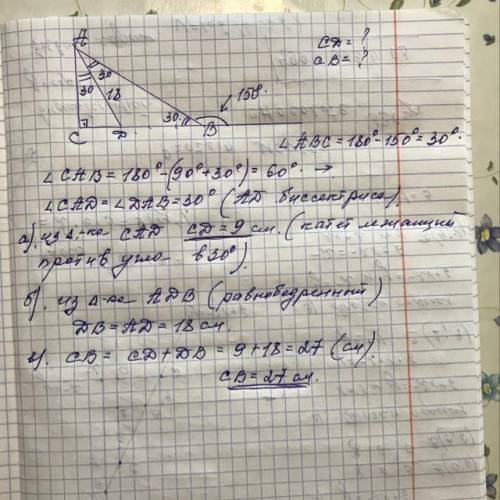 A
CD = ?
CB = ?
30
30
18
150°
30
C
D
B
∠ABC = 180° - 150° = 30°.
∠CAB = 180° - (90° + 30°) = 60° →
∠CAD = ∠DAB = 30° (AD биссектриса).
а). из Δ-ка CAD CD = 9 см. (катет лежащий
против угла в 30°).
б). из Δ-ка ADB (равнобедренный)
DB = AD = 18 см.
в). CB = CD + DB = 9 + 18 = 27 (см).
CB = 27 см.